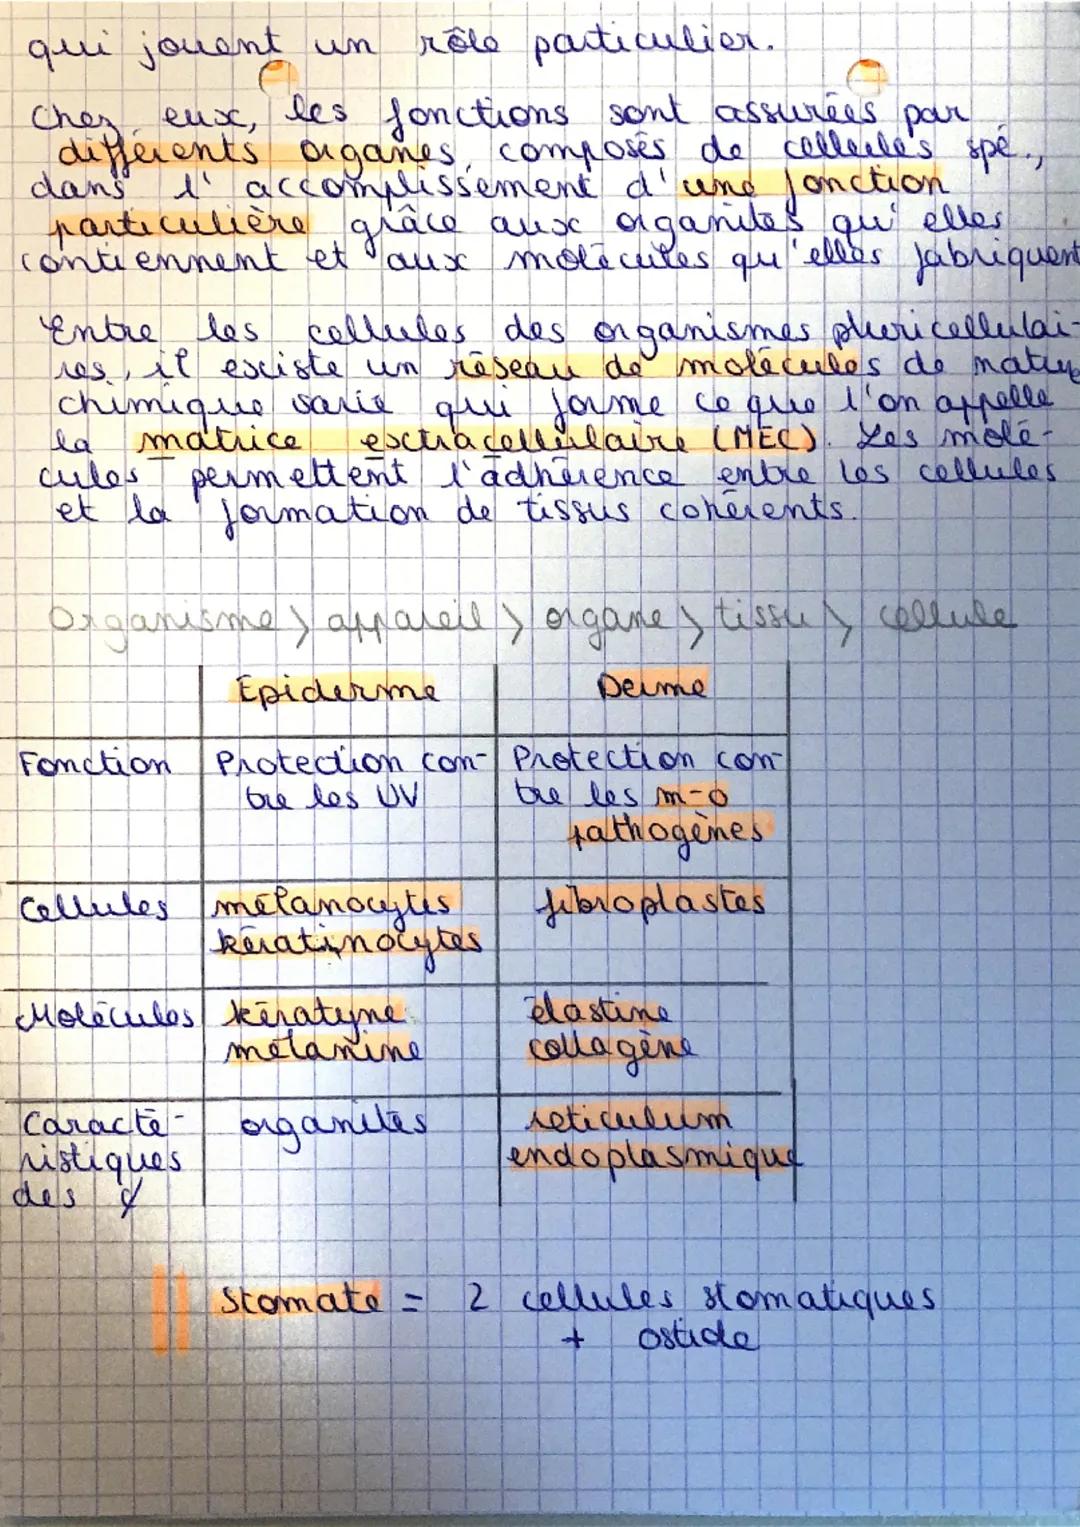 qui jouent un rôle particulier.
Chez eux, les fonctions sont assurées par
différents organes, composés de cellules spé.,
dans l'accomplissement d'une fonction
particulière grâce aux organites qu'elles
contiennent et aux molécules qu'elles fabriquent
Entre les cellules des organismes pluricellulai-
res, il existe un réseau de molécules de nature
chimique varié qui forme ce que l'on appelle
la matrice extracellulaire (MEC). Les molé-
cules permettent l'adhérence entre les cellules
et la formation de tissus cohérents.
Organisme > appareil > organe > tissu > cellule
Epiderme Derme
Fonction Protection con- Protection con-
tre les UV tre les m-o
pathogènes
Cellules mélanocytes fibroplastes
kératinocytes
Molécules kératyne élastine
mélanine collagène
Caracté- organites reticulum
ristiques endoplasmique
des
Stomate = 2 cellules stomatiques
+ ostiole